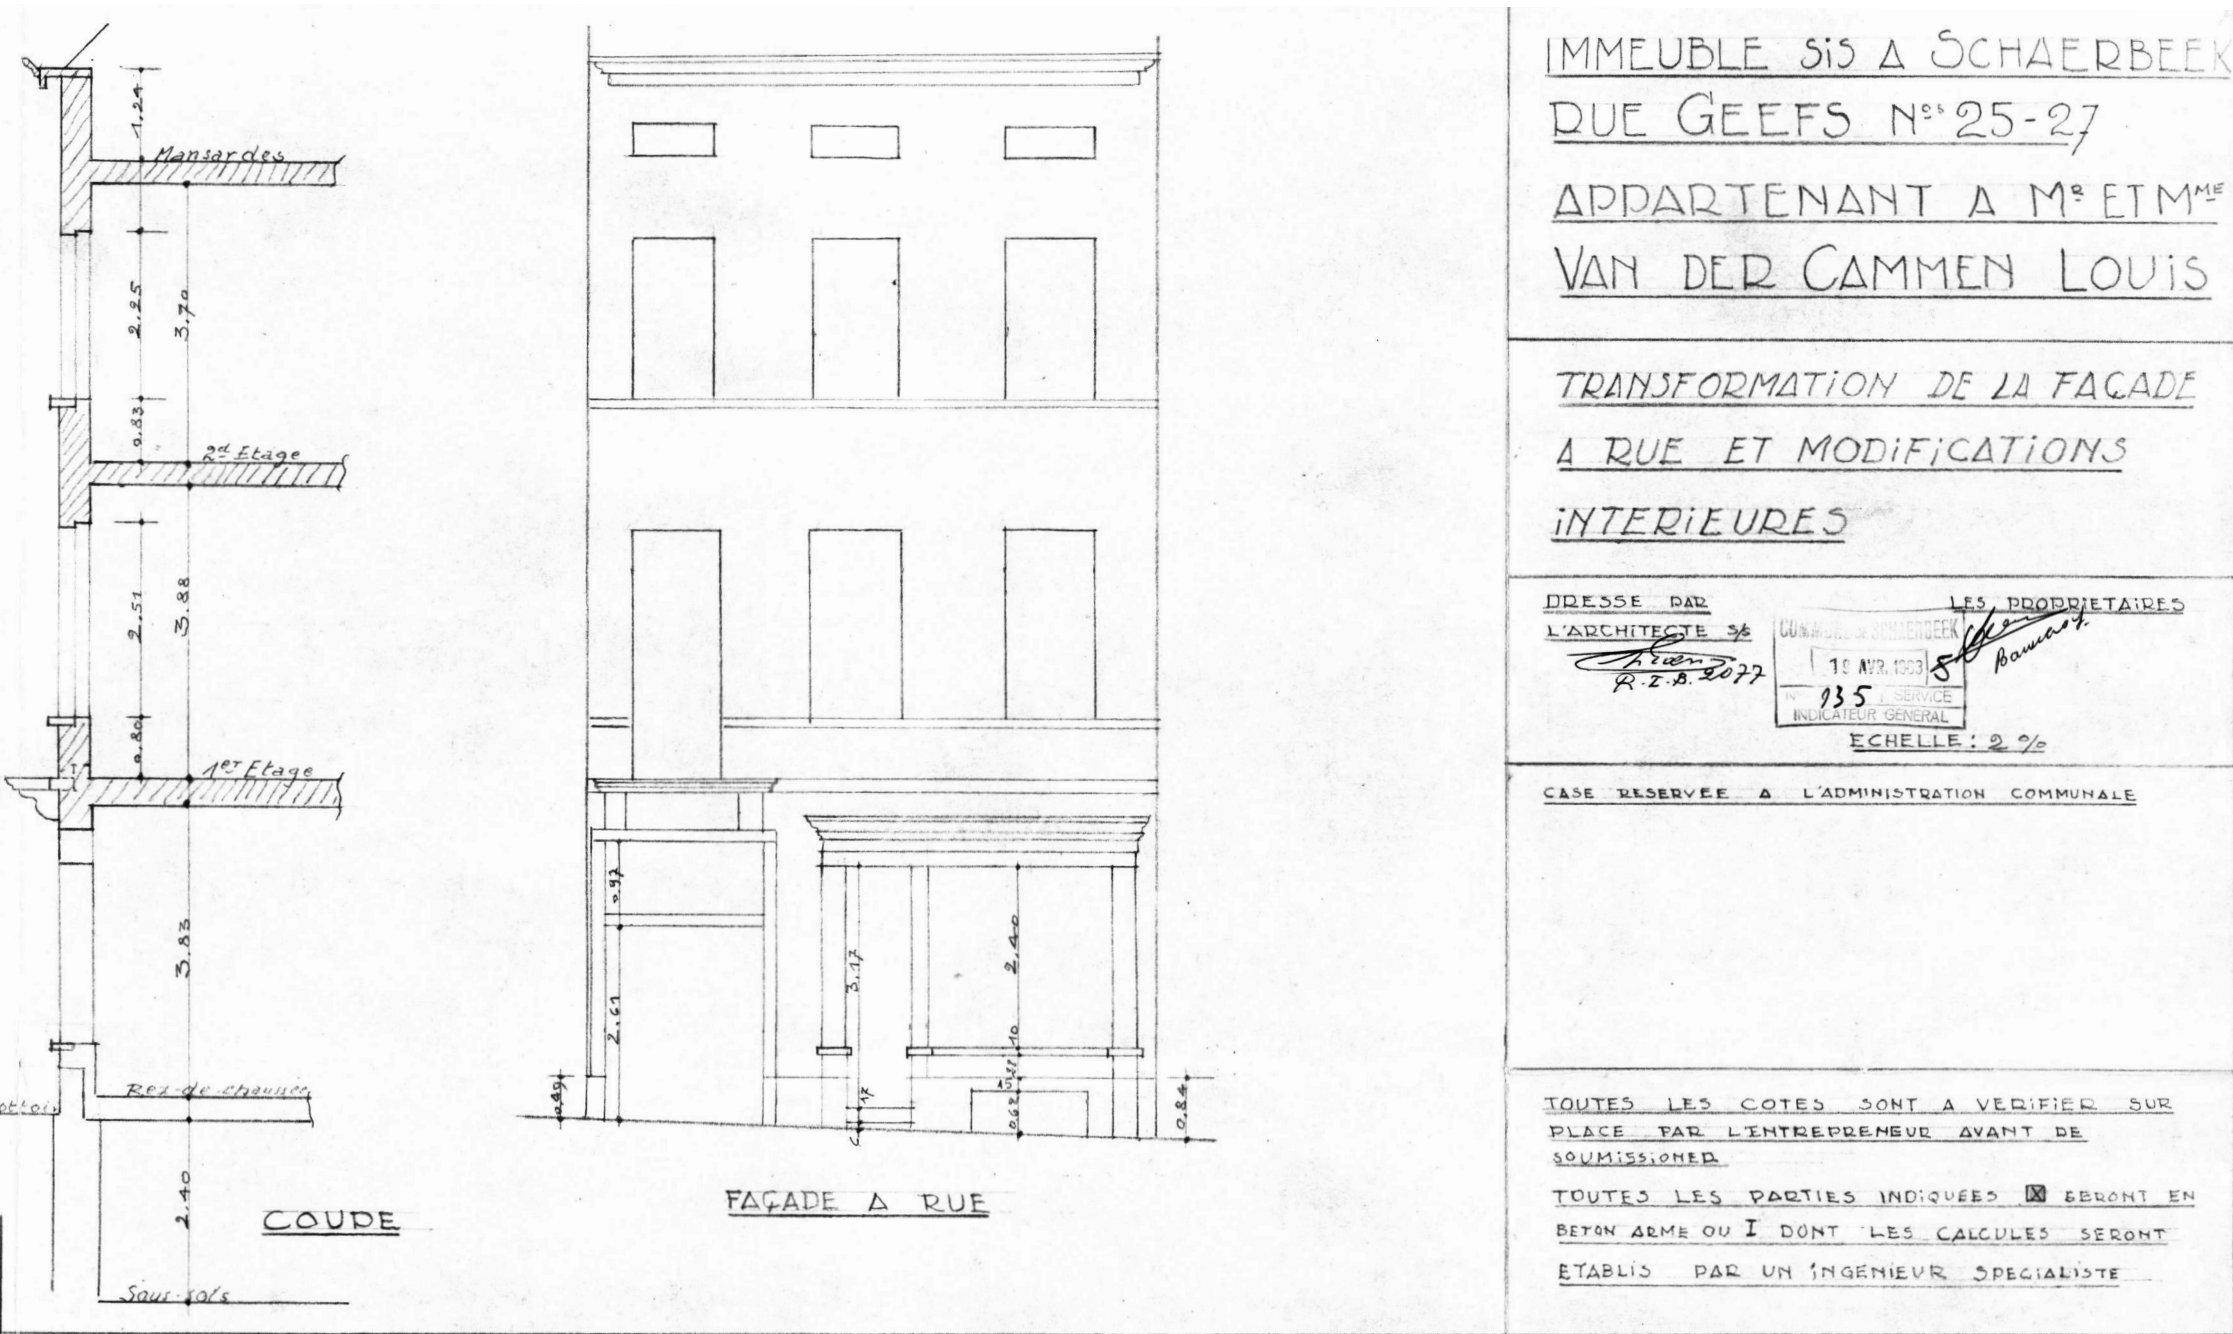 1.24
Mansardes
2.25
3.70
0.83
2d Etage
2.51
3.88
0.80
1er Etage
3.83
Rez-de-chaussée
2.40
Sous-sols
COUPE
0.97
2.61
0.49
3.17
17
2.40
10
15
0.62
0.84
FAÇADE A RUE
IMMEUBLE SiS A SCHAERBEEK
RUE GEEFS Nos 25-27
APPARTENANT A MR ET MME
VAN DER CAMMEN LOUiS
TRANSFORMATiON DE LA FAÇADE
A RUE ET MODiFiCATiONS
iNTERiEURES
DRESSE PAR
L'ARCHiTECTE S/S
R.I.B. 2077
LES PROPRiETAiRES
COMMUNE DE SCHAERBEEK
19 AVR. 1963
N° 135 SERVICE
INDICATEUR GENERAL
ECHELLE : 2 %
CASE RESERVEE A L'ADMINISTRATION COMMUNALE
TOUTES LES COTES SONT A VERiFiER SUR
PLACE PAR L'ENTREPRENEUR AVANT DE
SOUMiSSiONER
TOUTES LES PARTiES INDiQUEES SERONT EN
BETON ARME OU I DONT LES CALCULES SERONT
ETABLiS PAR UN iNGENiEUR SPECiALiSTE